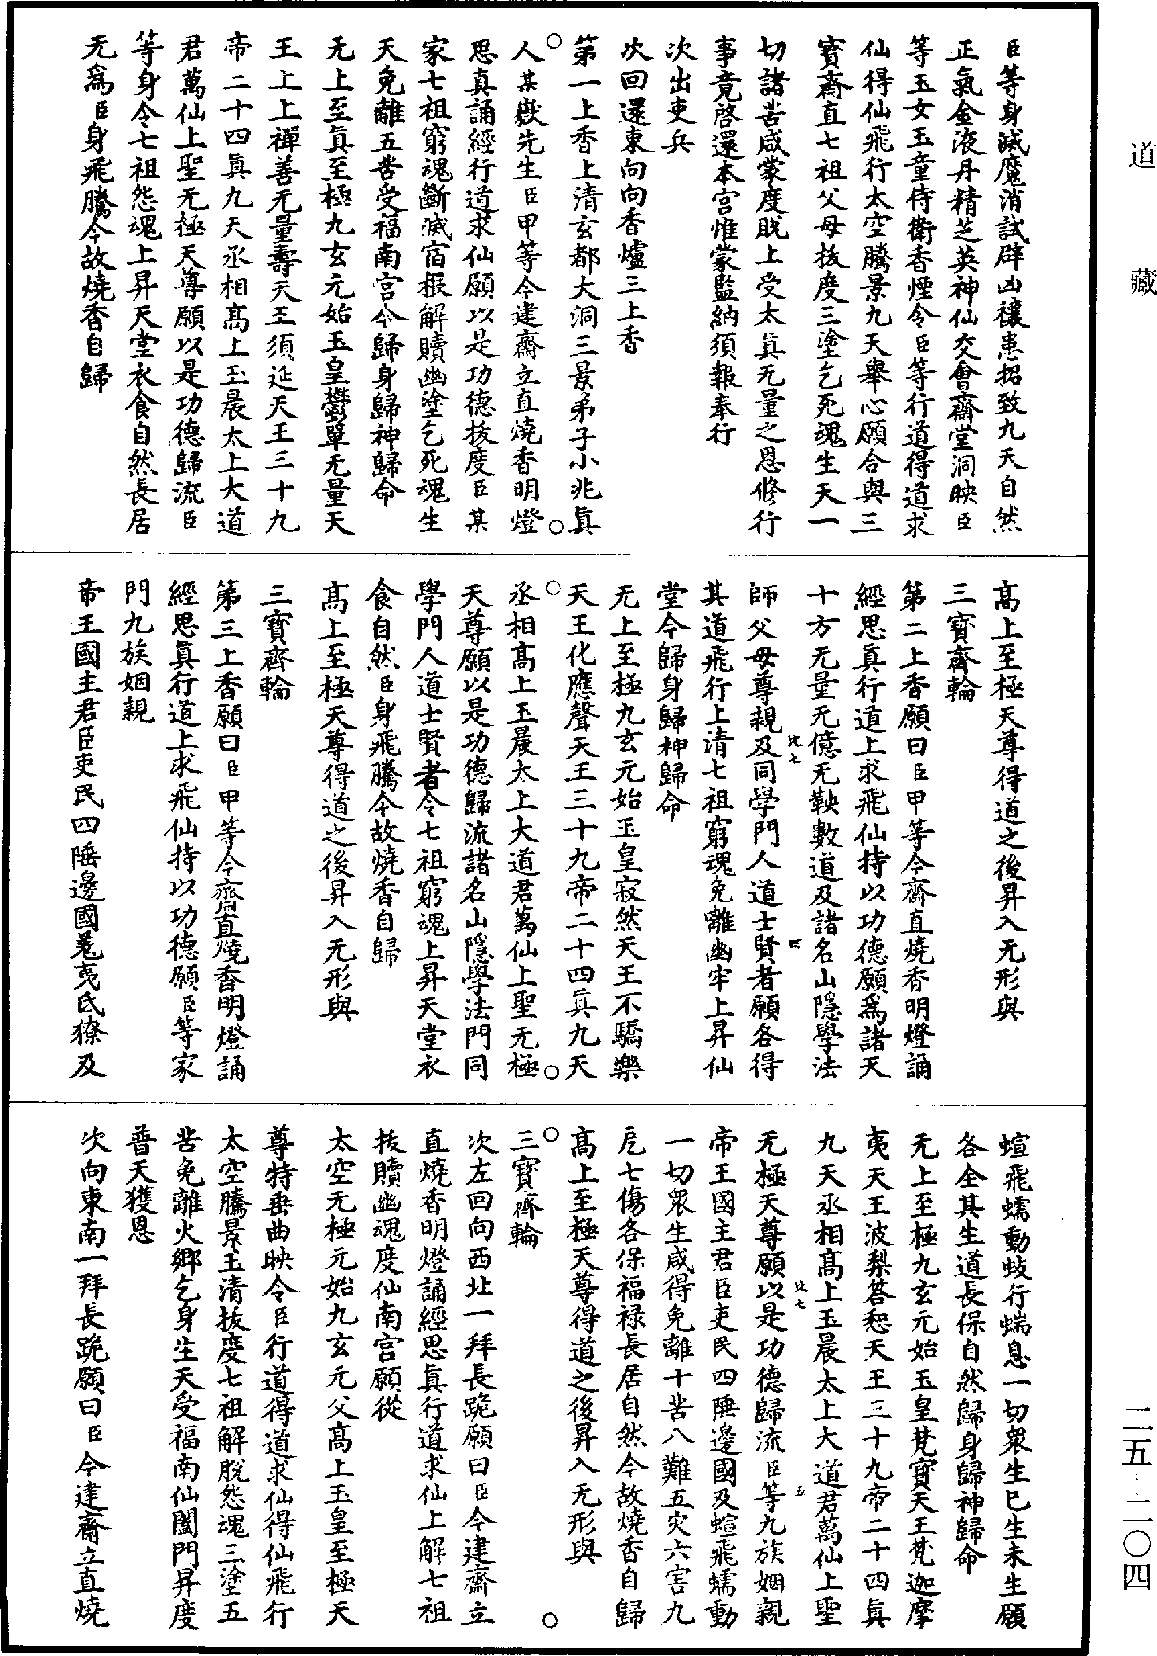 道藏
二五·二〇四
臣等身滅魔消試辟凶穰恚招致九天自然
正氣金液丹精芝英神仙交會齋堂洞映臣
等玉女玉童侍衛香煙令臣等行道得道求
仙得仙飛行太空騰景九天舉心願合與三
寶齋直七祖父母拔度三塗乞死魂生天一
切諸苦咸蒙度脫上受太眞无量之恩修行
事竟啓還本宮惟蒙監納須報奉行
次出吏兵
次回還東向向香爐三上香
第一上香上清玄都大洞三景弟子小兆眞
人某嶽先生臣甲等今建齋立直燒香明燈
思眞誦經行道求仙願以是功德拔度臣某
家七祖窮魂斷滅宿根解贖幽塗乞死魂生
天免離五苦受福南宮今歸身歸神歸命
无上至眞至極九玄元始玉皇鬱單无量天
王上上禪善无量壽天王須延天王三十九
帝二十四眞九天丞相高上玉晨太上大道
君萬仙上聖无極天尊願以是功德歸流臣
等身令七祖怨魂上昇天堂衣食自然長居
无爲臣身飛騰今故燒香自歸
高上至極天尊得道之後昇入无形與
三寶齊輪
第二上香願曰臣甲等今齋直燒香明燈誦
經思眞行道上求飛仙持以功德願爲諸天
十方无量无億无鞅數道及諸名山隱學法
師父母尊親及同學門人道士賢者願各得
其道飛行上清七祖窮魂免離幽牢上昇仙
堂今歸身歸神歸命
无上至極九玄元始玉皇寂然天王不驕樂
天王化應聲天王三十九帝二十四眞九天
丞相高上玉晨太上大道君萬仙上聖无極
天尊願以是功德歸流諸名山隱學法門同
學門人道士賢者令七祖窮魂上昇天堂衣
食自然臣身飛騰今故燒香自歸
高上至極天尊得道之後昇入无形與
三寶齊輪
第三上香願曰臣甲等今齋直燒香明燈誦
經思眞行道上求飛仙持以功德願臣等家
門九族姻親
帝王國主君臣吏民四陲邊國羌夷氐獠及
蝖飛蠕動蚑行蜎息一切衆生已生未生願
各全其生道長保自然歸身歸神歸命
无上至極九玄元始玉皇梵寶天王梵迦摩
夷天王波梨答惒天王三十九帝二十四眞
九天丞相高上玉晨太上大道君萬仙上聖
无極天尊願以是功德歸流臣等九族姻親
帝王國主君臣吏民四陲邊國及蝖飛蠕動
一切衆生咸得免離十苦八難五災六害九
厄七傷各保福祿長居自然今故燒香自歸
高上至極天尊得道之後昇入无形與
三寶齊輪
次左回向西北一拜長跪願曰臣今建齋立
直燒香明燈誦經思眞行道求仙上解七祖
拔贖幽魂度仙南宮願從
太空无極元始九玄元父高上玉皇至極天
尊特垂曲映令臣行道得道求仙得仙飛行
太空騰景玉清拔度七祖解脫怨魂三塗五
苦免離火鄉乞身生天受福南仙闔門昇度
普天獲恩
次向東南一拜長跪願曰臣今建齋立直燒